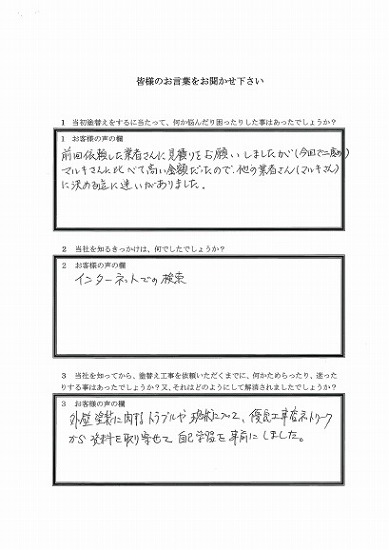 皆様のお言葉をお聞かせ下さい
1 当初塗替えをするに当たって、何か悩んだり困ったりした事はあったでしょうか?
1 お客様の声の欄
前回依頼した業者さんに見積りをお願いしましたが(今回で二度め)
マルキさんに比べて高い金額だったので、他の業者さん(マルキさん)
に決める迄に迷いがありました。
2 当社を知るきっかけは、何でしたでしょうか?
2 お客様の声の欄
インターネットでの検索
3 当社を知ってから、塗替え工事を依頼いただくまでに、何かためらったり、迷った
りする事はあったでしょうか?又、それはどのようにして解消されましたでしょうか?
3 お客様の声の欄
外壁塗装に関するトラブルや について、優良工事店ネットワーク
から資料を取り寄せて自己学習を事前にしました。